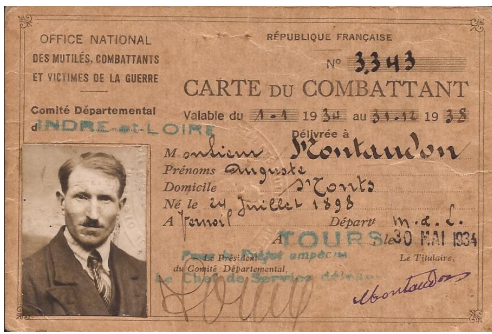 OFFICE NATIONAL
DES MUTILÉS, COMBATTANTS
ET VICTIMES DE LA GUERRE
Comité Départemental
d'INDRE-et-LOIRE
RÉPUBLIQUE FRANÇAISE
No 3343
CARTE DU COMBATTANT
Valable du 1-1 1934 au 31-12 1938
Délivrée à
Monsieur Montaudon
Prénoms Auguste
Domicile Monts
Né le 24 Juillet 1898
A Vernoil Départt m. & L.
A TOURS le 30 MAI 1934
Le Président
du Comité Départemental,
Le Chef de Service délégué
Le Titulaire,
Montaudon